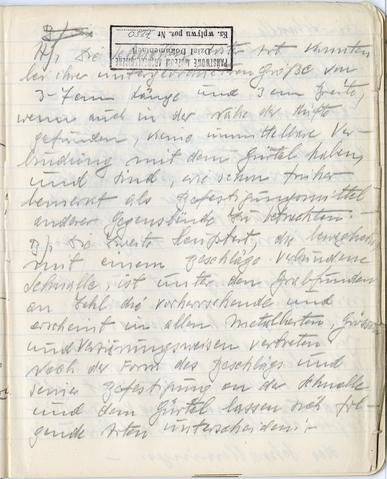 A/ Die
bei ihrer Größe von
3-7 cm Länge und 3 cm Breite,
wenn auch in der Nähe der Hüfte
gefunden, keine unmittelbare Ver-
bindung mit dem Gürtel haben,
und sind, wie schon früher
bemerkt als Befestigungsmittel
anderer Gegenstände zu betrachten.
B/ Die zweite Hauptart, die bewegliche
mit einem Beschläge verbundene
Schnalle, ist unter den Grabfunden
an Zahl die vorherrschende und
erscheint in allen Metallarten, Größen
und Verzierungsweisen vertreten
Nach der Form des Beschlägs und
seiner Befestigung an der Schnalle
und dem Gürtel lassen sich fol-
gende Arten unterscheiden:-
PAŃSTWOWE MUZEUM ARCHEOLOGICZNE
Dział Dokumentacji
Ks. wpływu poz. Nr